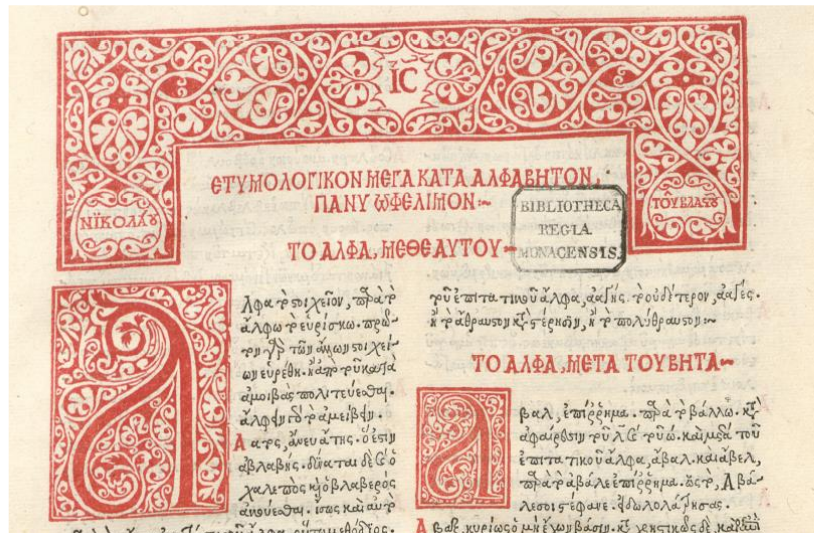 IC
ΝΪΚΟΛΑΟΥ
ΤΟΥ ΒΛΑΣΤΟΥ
ΕΤΥΜΟΛΟΓΙΚΟΝ ΜΕΓΑ ΚΑΤΑ ΑΛΦΑΒΗΤΟΝ,
ΠΑΝΥ ΩΦΕΛΙΜΟΝ~
BIBLIOTHECA
REGIA
MONACENSIS.
ΤΟ ΑΛΦΑ, ΜΕΘΕΑΥΤΟΥ~
Αλφα τὸ στοιχεῖον, παρὰ τὸ
ἄλφω τὸ εὑρίσκω. πρῶ-
τον γὰρ τῶν ἄλλων στοιχεί-
ων εὑρέθη. ἢ ἀπὸ τοῦ κατὰ
ἀμοιβὰς πολιτεύεσθαι.
ἀλφεῖν γὰρ τὸ ἀμείβειν.
Ἄατος, ἄνευ ἄτης. ὅ ἐστιν
ἀβλαβής. δύναται δὲ καὶ ὁ
χαλεπὸς καὶ ὁ βλαβερὸς
ἀκούεσθαι. ἴσως
τοῦ ἐπιτατικοῦ ἄλφα, ἀαγής. τὸ οὐδέτερον, ἀαγές.
ἢ τὸ ἄθραυστον κατὰ στέρησιν, ἢ τὸ πολύθραυστον:~
ΤΟ ΑΛΦΑ, ΜΕΤΑ ΤΟΥ ΒΗΤΑ~
Αβαλ, ἐπίρρημα. παρὰ τὸ βάλλω. κατὰ
ἀφαίρεσιν τοῦ λ καὶ τοῦ ω. καὶ μετὰ τοῦ
ἐπιτατικοῦ ἄλφα, ἄβαλ. καὶ ἄβελ,
παρὰ τὸ ἄβαλε ἐπίρρημα. ὥς τὸ, Ἀβά-
Ἄβαξ, κυρίως ὁ μὴ ἔχων βάσιν. καταχρηστικῶς δὲ, καὶ